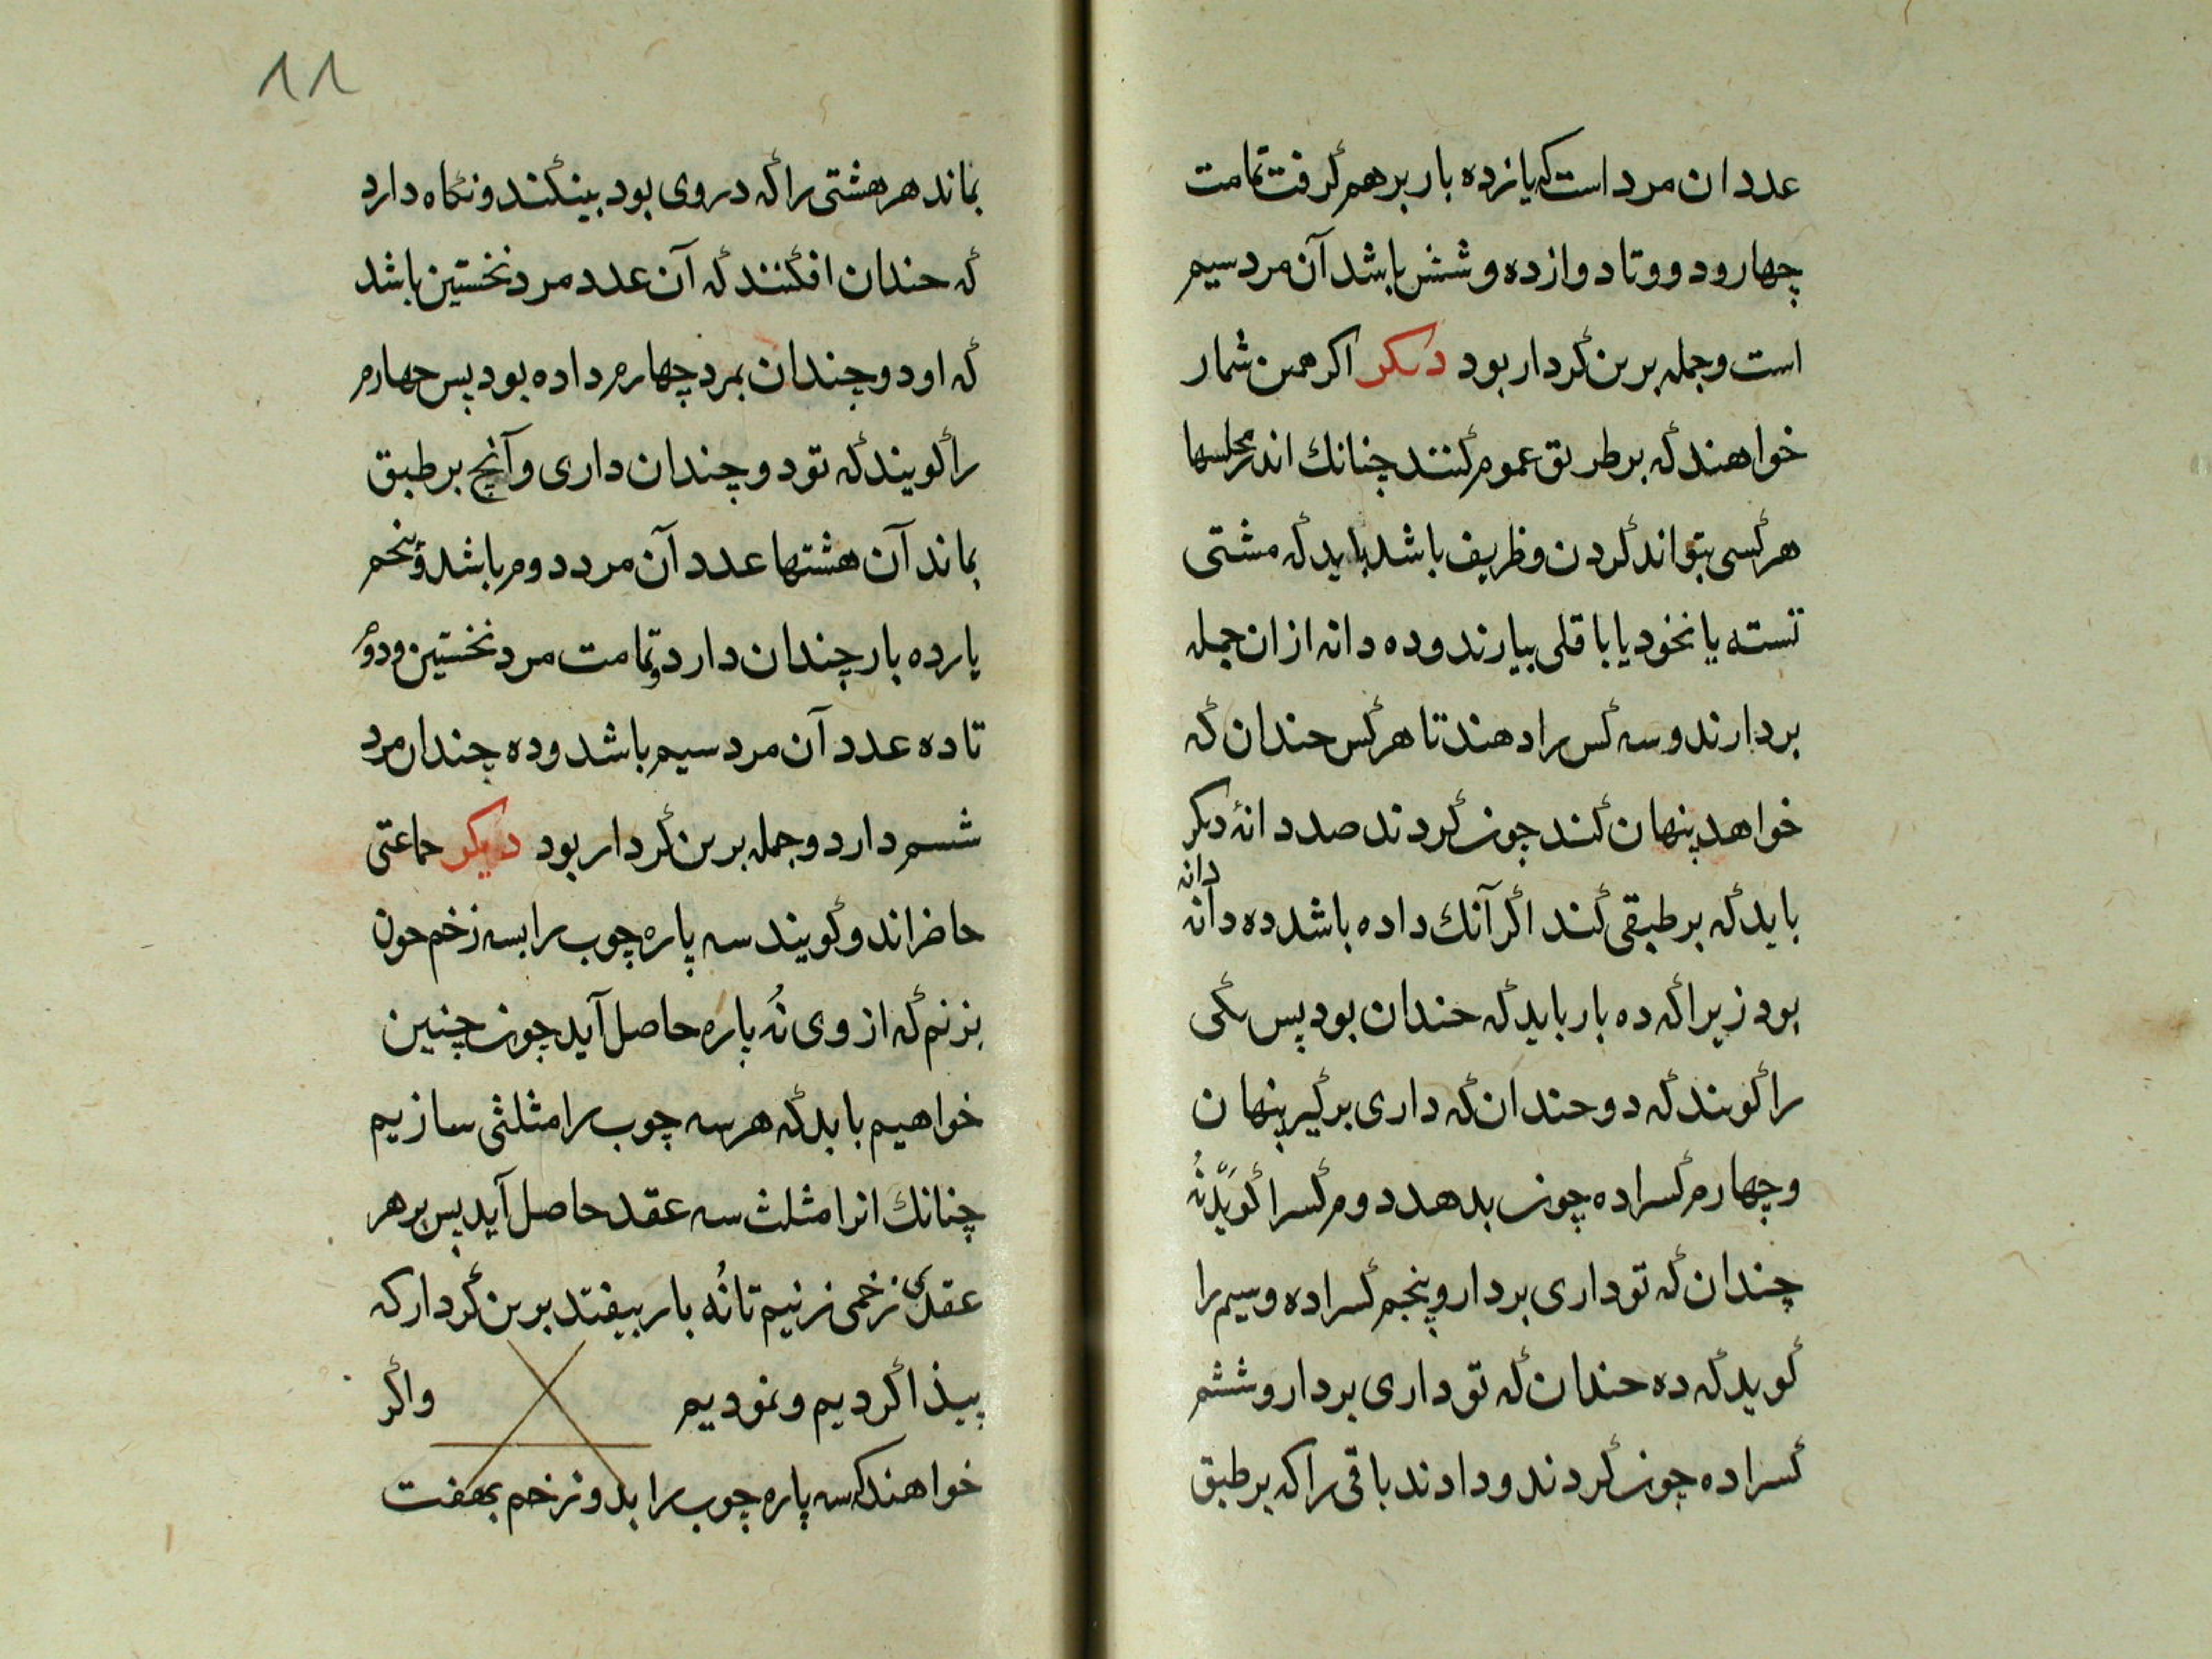 عدد ان مرد است که یازده بار برهم گرفت تمامت
چهار و دو و تا دوازده و شش باشد آن مرد سیم
است و جمله برین کردار بود دیکر اکر همین شمار
خواهند که بر طریق عموم کنند چنانك اندر مجلسها
هر کسی بتواند کردن و ظریف باشد باید که مشتی
تسته یا نخود یا باقلی بیارند و ده دانه از ان جمله
بردارند و سه کس را دهند تا هر کس حندان که
خواهد پنهان کند چون کردند صد دانهٔ دیکر
باید که بر طبقی کند اکر آنك داده باشد ده دانه دانه
بود زیرا که ده بار باید که حندان بود پس یکی
را کویند که دو حندان که داری برگیر پنهان
و چهارم کس را ده چون بدهد دوم کس را کوید نُه
چندان که تو داری بردار و پنجم کس را ده و سیم را
کوید که ده حندان که تو داری بردار و ششم
کس را ده چون کردند و دادند باقی را که بر طبق
١١
بماند هر هشتی را که در وی بود بیفکند و نکاه دارد
که حندان افکنند که آن عدد مرد نخستین باشد
که او دو چندان بمرد چهارم داده بود پس چهارم
را کویند که تو دو چندان داری و آنچ بر طبق
بماند آن هشتها عدد آن مرد دوم باشد و پنجم
یازده بار چندان دارد و تمامت مرد نخستین و دوم
تا ده عدد آن مرد سیم باشد و ده چندان مرد
ششم دارد و جمله برین کردار بود دیکر جماعتی
حاضراند و کویند سه پاره چوب را بسه زخم چون
بزنم که از وی نُه پاره حاصل آید چون چنین
خواهیم باید که هر سه چوب را مثلثی سازیم
چنانك انرا مثلث سه عقد حاصل آید پس بر هر
عقدی زخمی زنیم تا نُه بار بیفتد برین کردار که
پیذا کردیم و نمودیم واکر
خواهند که سه پاره چوب را بدو زخم بهفت